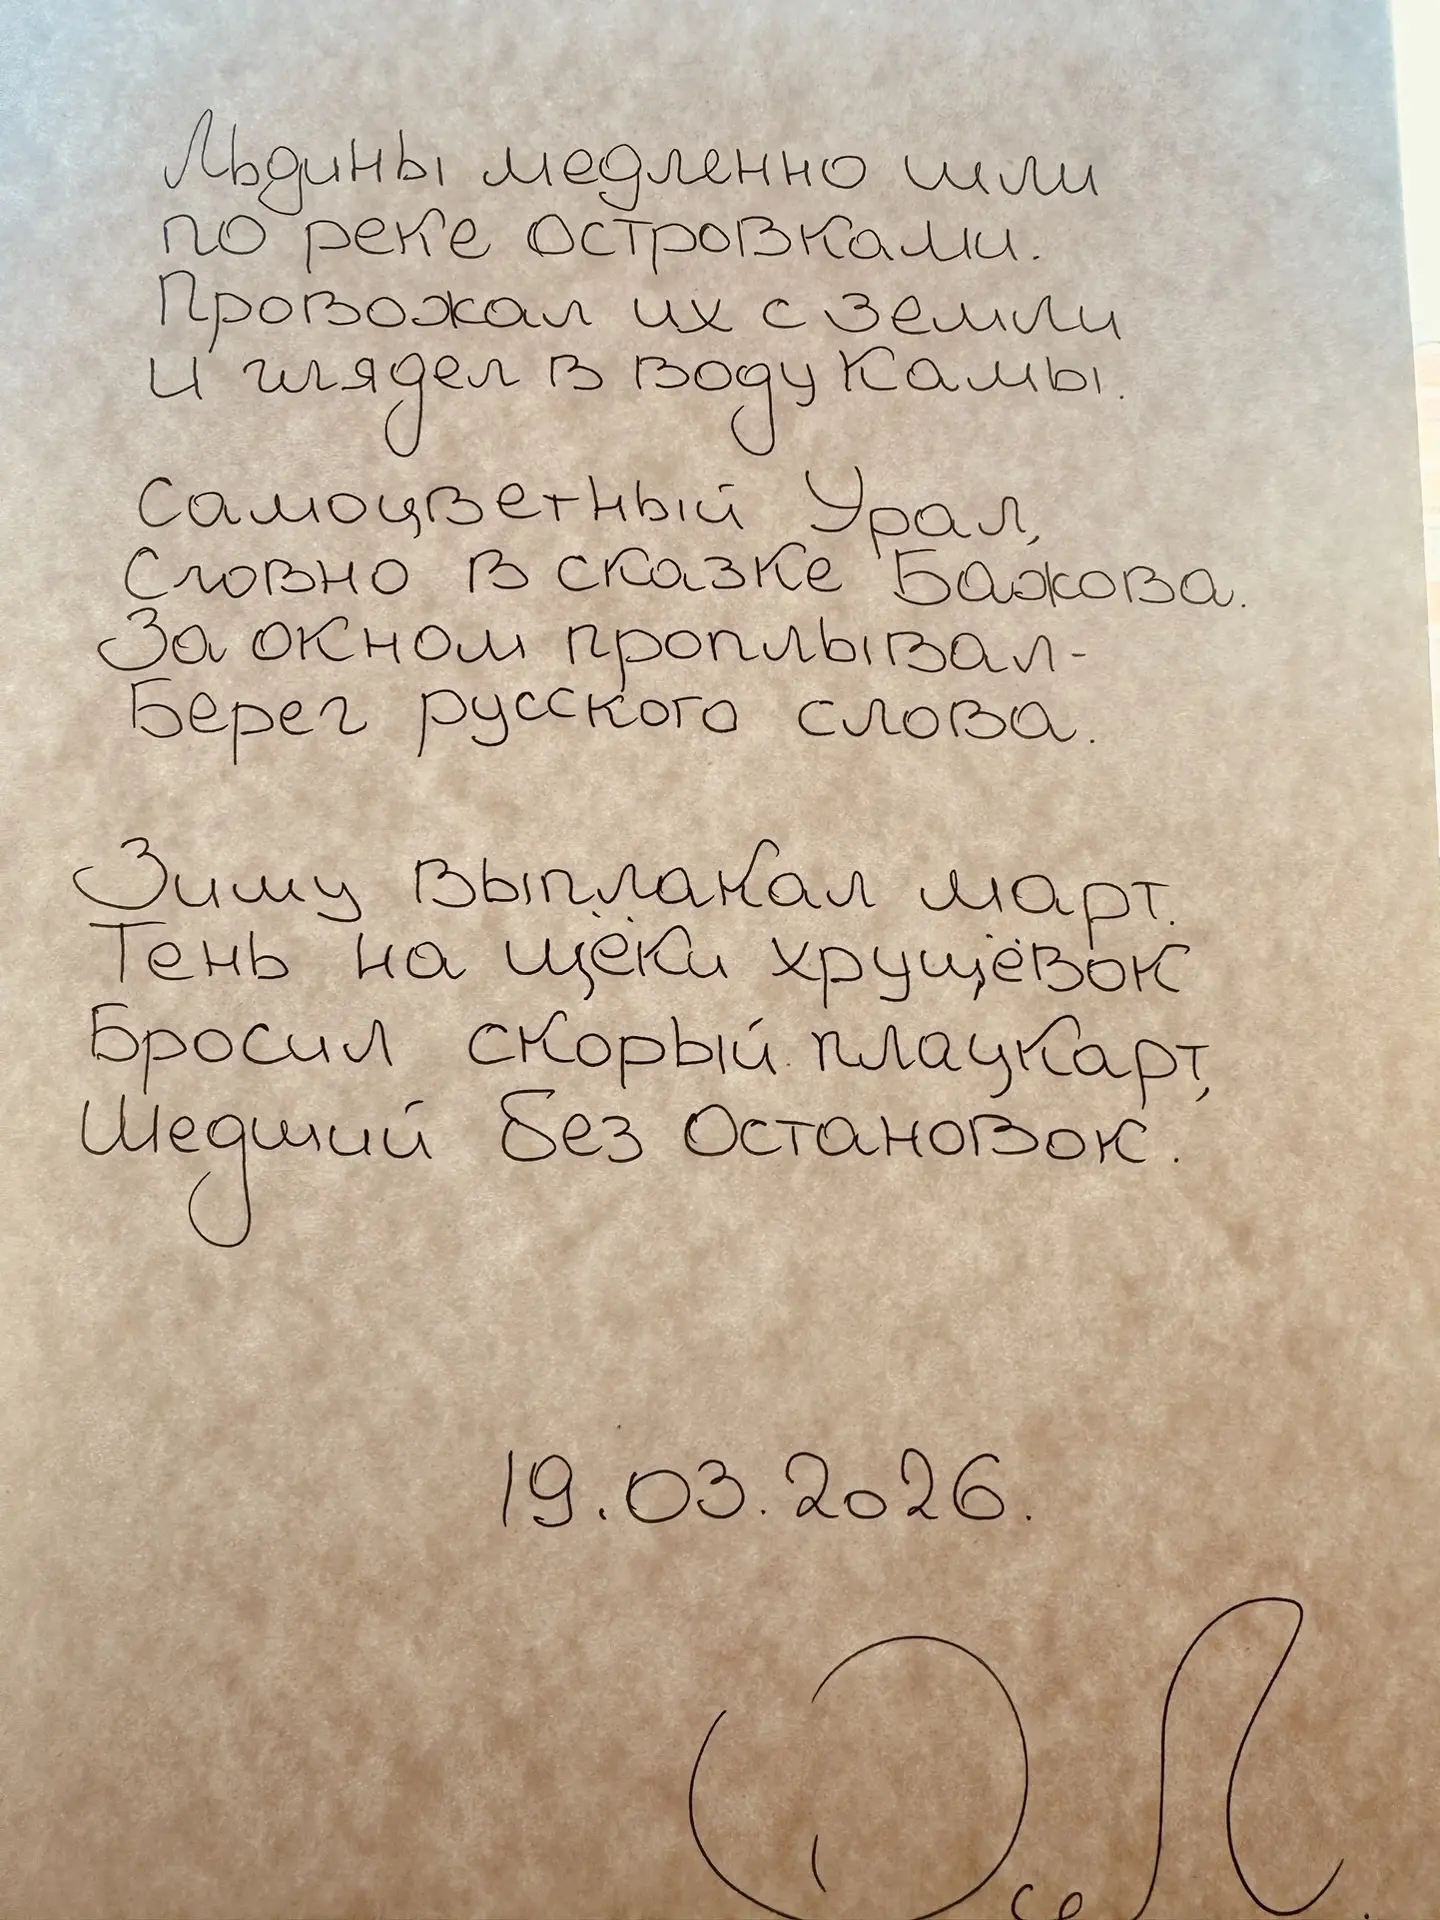 Льдины медленно шли
по реке островками.
Провожал их с земли
и глядел в воду Камы.
Самоцветный Урал,
Словно в сказке Бажова.
За окном проплывал-
Берег русского слова.
Зиму выплакал март.
Тень на щёки хрущёвок
Бросил скорый плацкарт,
Шедший без остановок.
19.03.2026.